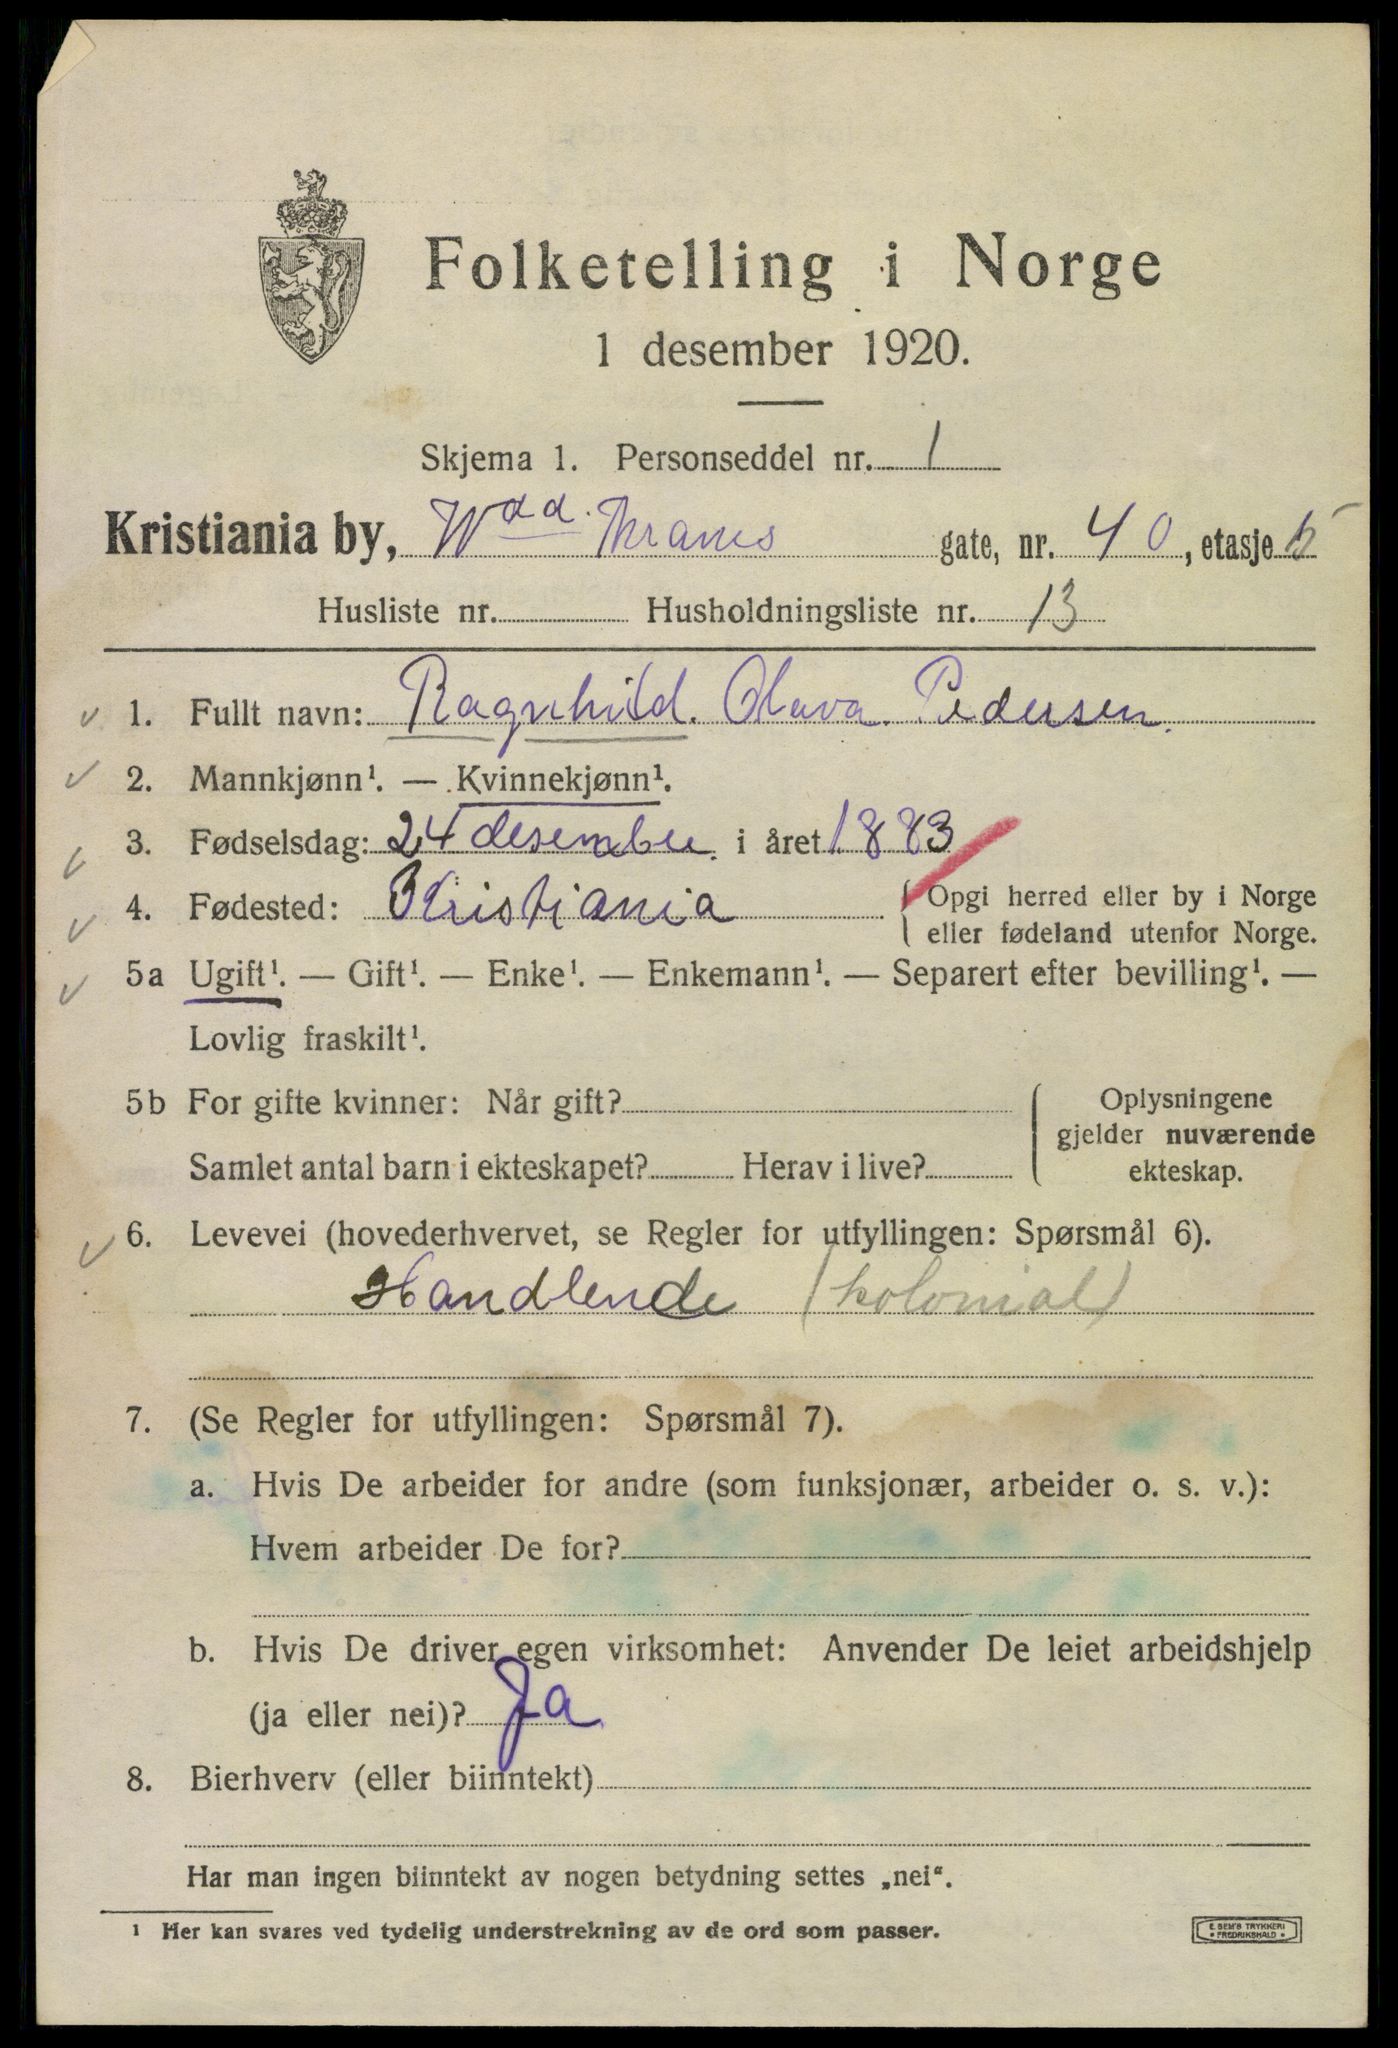 Folketelling i Norge
1 desember 1920.
Skjema 1. Personseddel nr. 1
Kristiania by, Wdd. Thranes gate, nr. 40, etasje 5
Husliste nr. Husholdningsliste nr. 13
1. Fullt navn: Ragnhild. Olava. Pedersen.
2. Mannkjønn¹. — Kvinnekjønn¹.
3. Fødselsdag: 24 desember. i året 1883
4. Fødested: Kristiania { Opgi herred eller by i Norge
eller fødeland utenfor Norge.
5a Ugift¹. — Gift¹. — Enke¹. — Enkemann¹. — Separert efter bevilling¹. —
Lovlig fraskilt¹.
5b For gifte kvinner: Når gift? { Oplysningene
gjelder nuværende
Samlet antal barn i ekteskapet? Herav i live? ekteskap.
6. Levevei (hovederhvervet, se Regler for utfyllingen: Spørsmål 6).
Handlende (kolonial)
7. (Se Regler for utfyllingen: Spørsmål 7).
a. Hvis De arbeider for andre (som funksjonær, arbeider o. s. v.):
Hvem arbeider De for?
b. Hvis De driver egen virksomhet: Anvender De leiet arbeidshjelp
(ja eller nei)? Ja
8. Bierhverv (eller biinntekt)
Har man ingen biinntekt av nogen betydning settes „nei“.
¹ Her kan svares ved tydelig understrekning av de ord som passer.
E. SEM'S TRYKKERI
• FREDRIKSHALD •